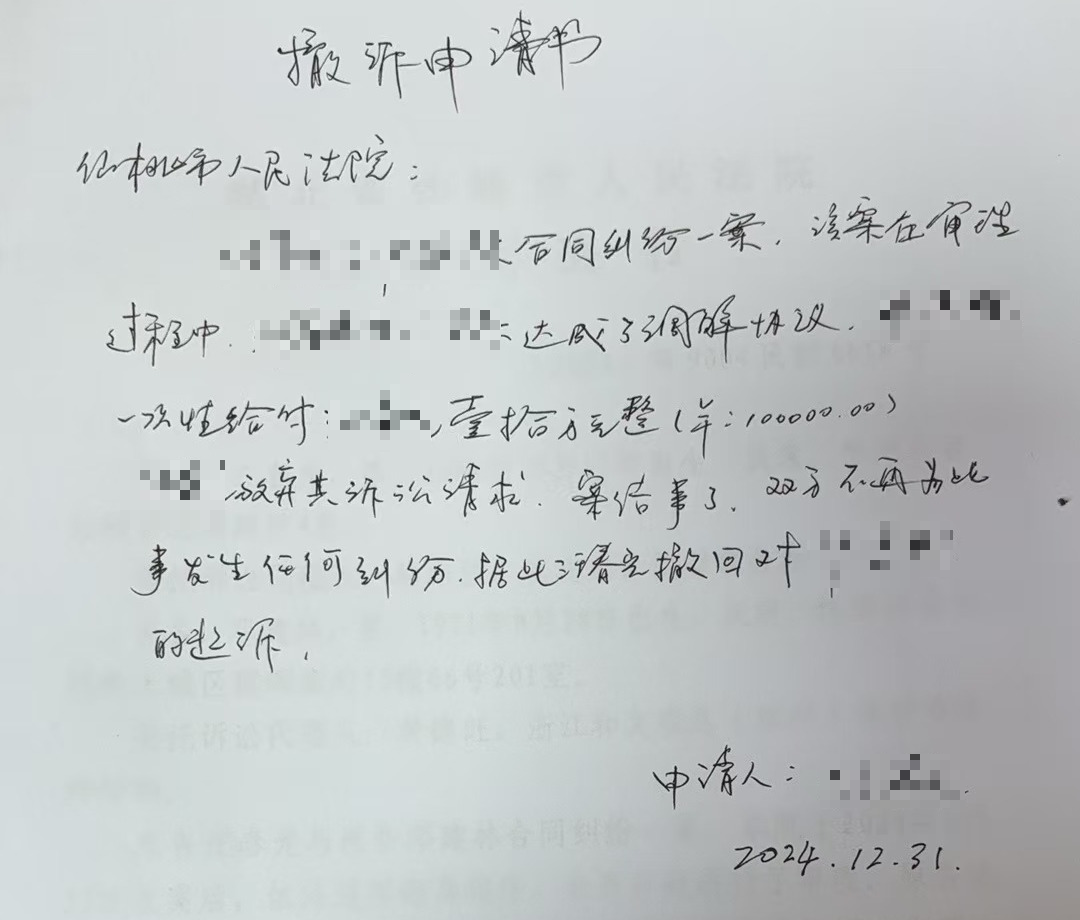 撤诉申请书
仙桃市人民法院：
合同纠纷一案，该案在审理
过程中，达成了调解协议，
一次性给付：，壹拾万元整（羊：100000.00）
放弃其诉讼请求，案结事了，双方不再为此
事发生任何纠纷，据此请先撤回对
的起诉，
申请人：
2024.12.31.